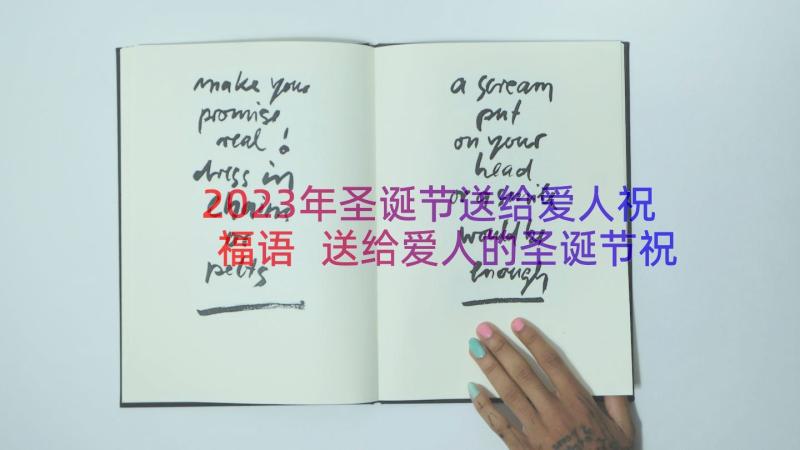 make your
promise
real!
dress in
chains
or
pelts
a scream
put
on your
head
would be
enough
2023年圣诞节送给爱人祝
福语 送给爱人的圣诞节祝